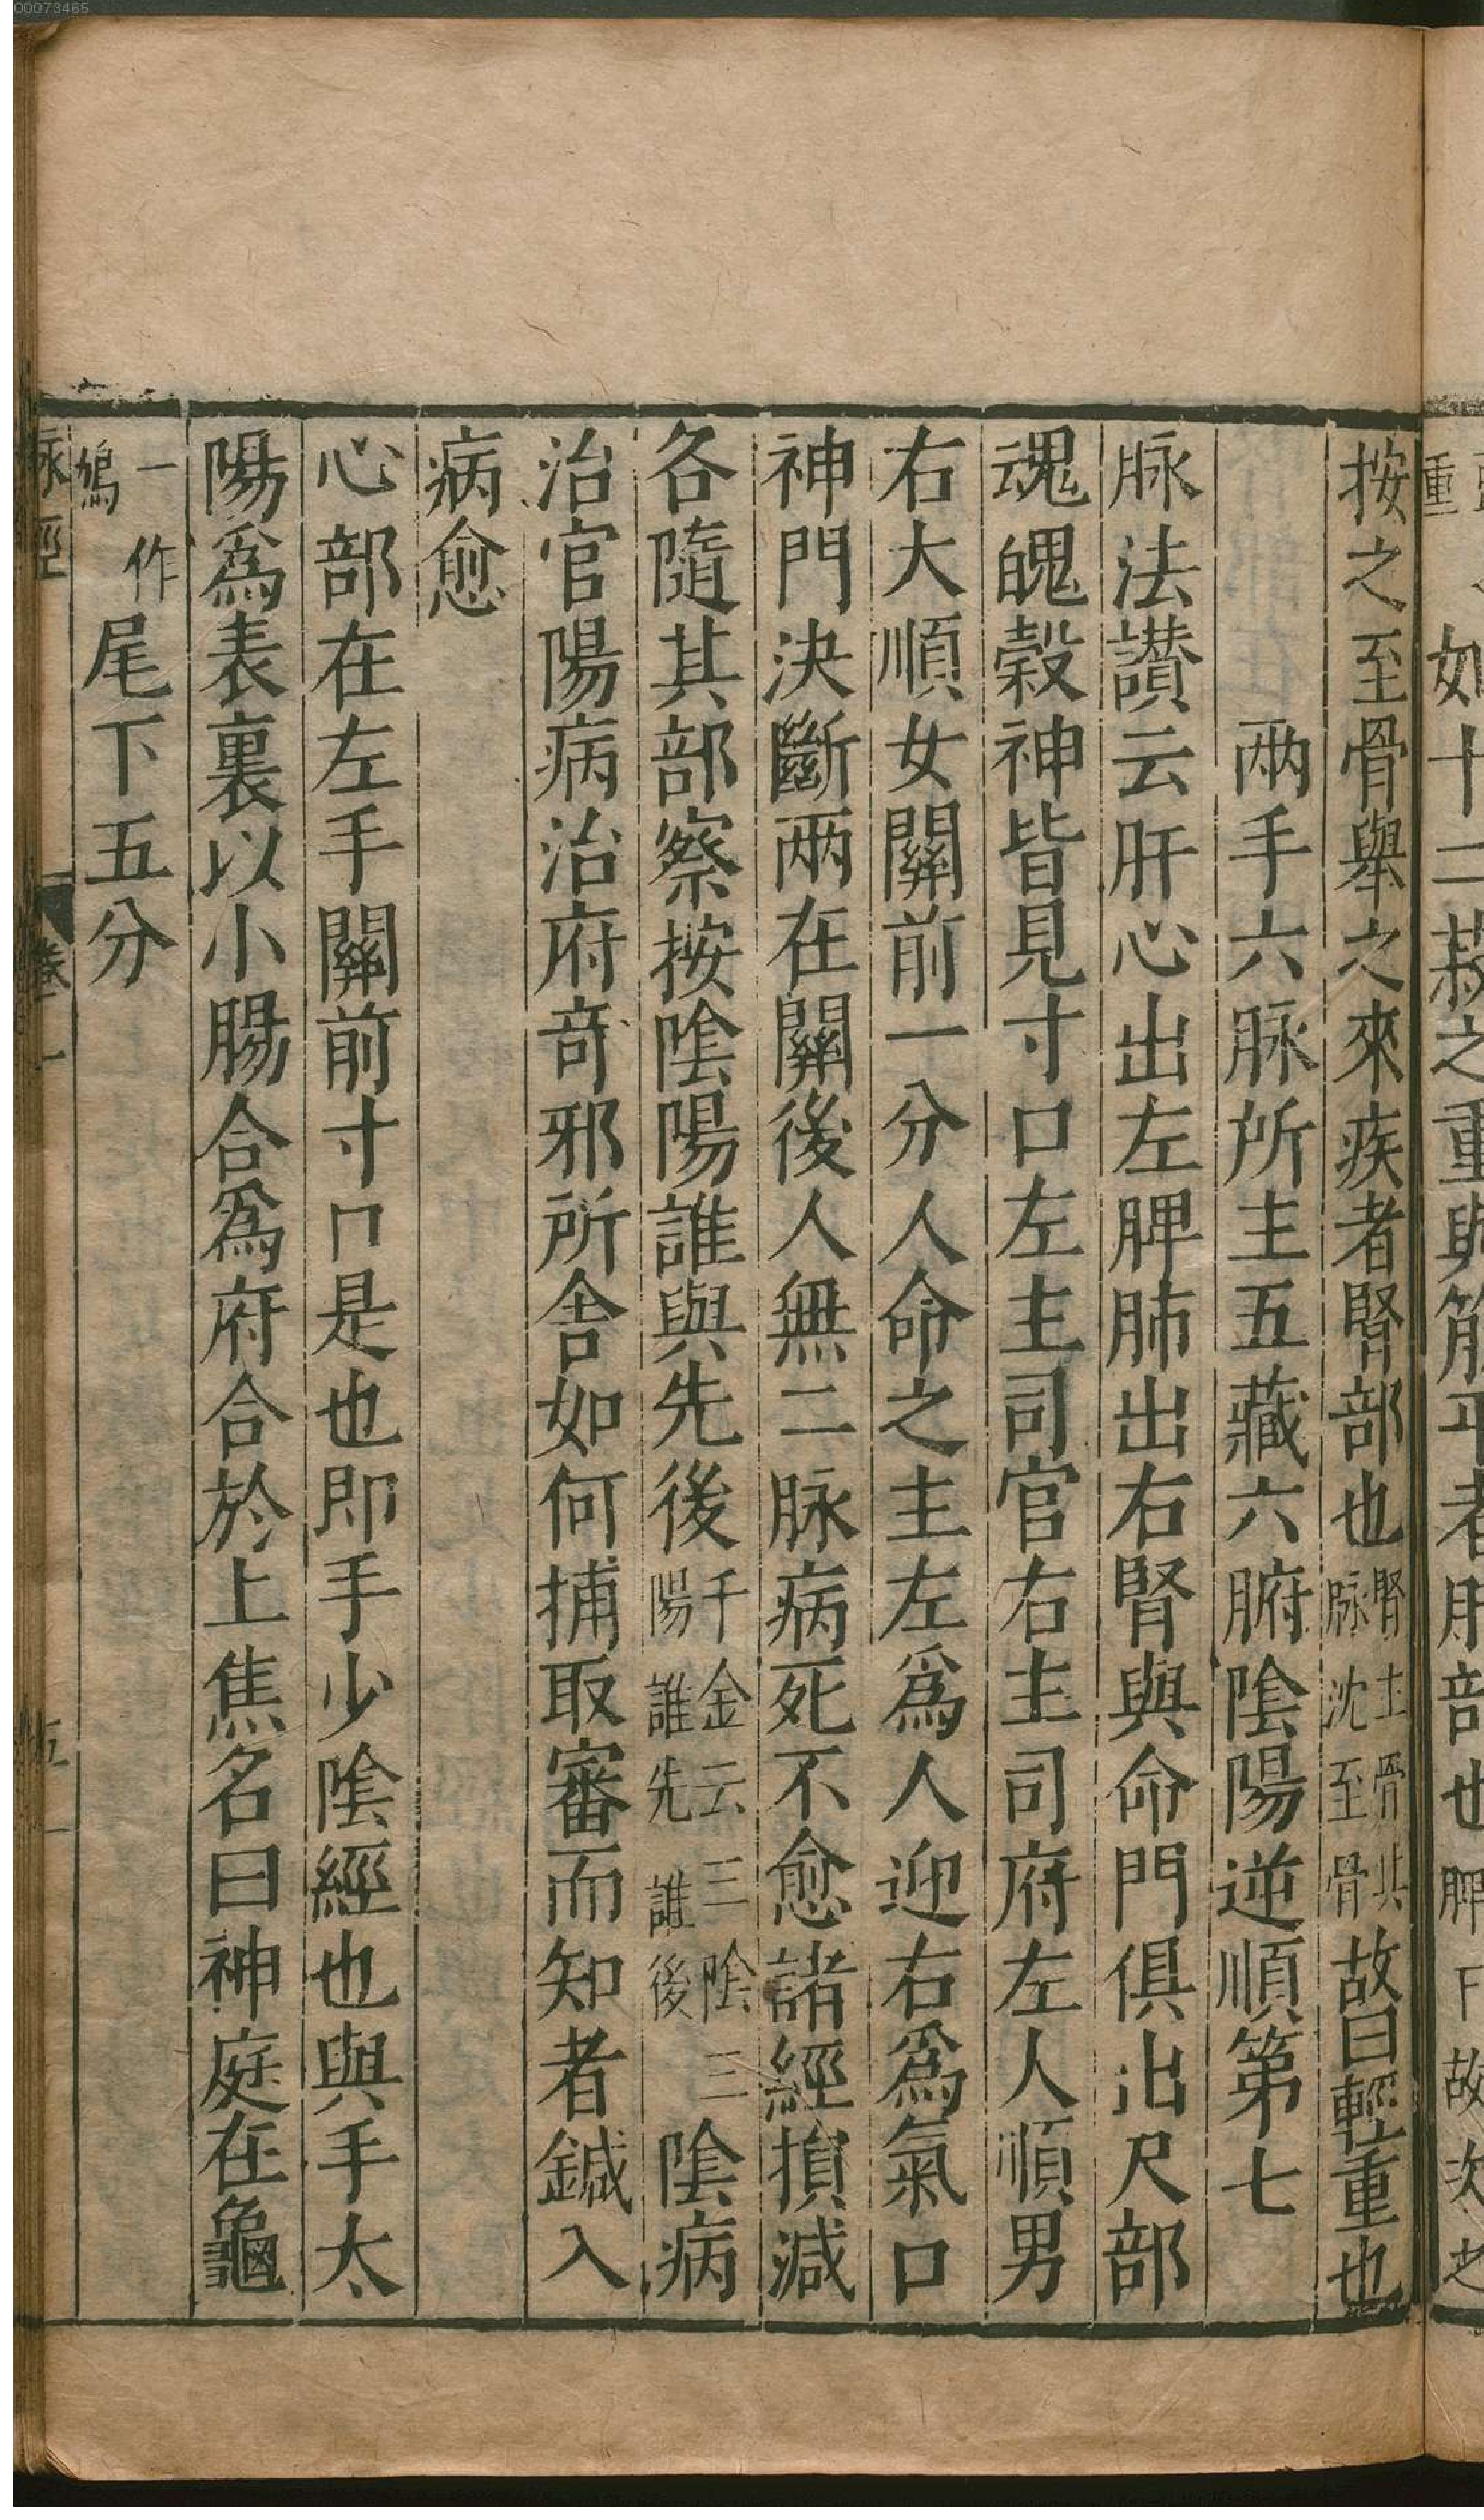 00073465
如十二菽之重與筋平者肝部也
按之至骨舉之來疾者腎部也腎主骨其脉沈至骨故曰輕重也
兩手六脉所主五藏六腑陰陽逆順第七
脉法讃云肝心出左脾肺出右腎與命門俱出尺部
魂魄榖神皆見寸口左主司官右主司府左人順男
右大順女關前一分人命之主左爲人迎右爲氣口
神門決斷兩在關後人無二脉病死不愈諸經損減
各隨其部察按陰陽誰與先後千金云三陰三陽誰先誰後陰病
治官陽病治府奇邪所舍如何捕取審而知者鍼入
病愈
心部在左手關前寸口是也即手少陰經也與手太
陽爲表裏以小腸合爲府合於上焦名曰神庭在龜
一作鳩尾下五分
脉經 卷一